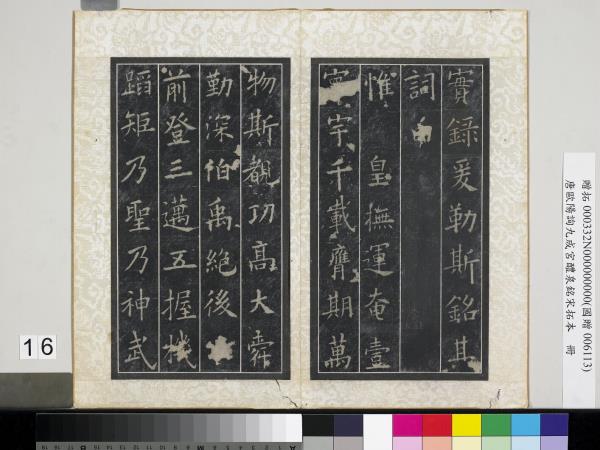 實錄爰勒斯銘其
詞
惟皇撫運奄壹
寰宇千載膺期萬
物斯覩功高大舜
勤深伯禹絕後
前登三邁五握機
蹈矩乃聖乃神武
贈拓 000332N000000000(國贈 006113)
唐歐陽詢九成宮醴泉銘宋拓本 冊
16